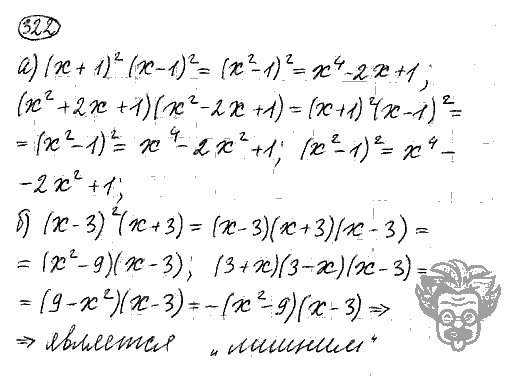 322
а) (x+1)²(x-1)² = (x²-1)² = x⁴-2x+1;
(x²+2x+1)(x²-2x+1) = (x+1)²(x-1)² =
= (x²-1)² = x⁴-2x²+1; (x²-1)² = x⁴-
-2x²+1;
б) (x-3)²(x+3) = (x-3)(x+3)(x-3) =
= (x²-9)(x-3); (3+x)(3-x)(x-3) =
= (9-x²)(x-3) = -(x²-9)(x-3) ⇒
⇒ является „лишним“